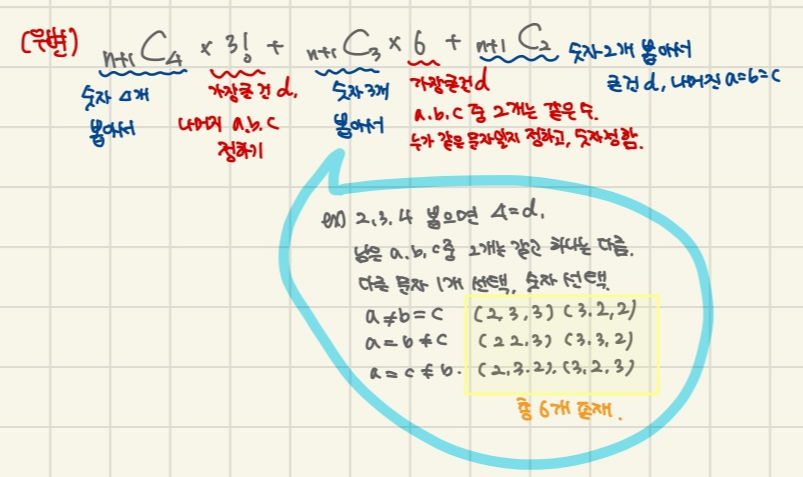 (우변) n+1C4 × 3! + n+1C3 × 6 + n+1C2 숫자 2개 뽑아서
큰건 d, 나머진 a=b=c
숫자 4개 뽑아서
가장큰 건 d, 나머지 a.b.c 정하기
숫자 3개 뽑아서
가장큰건 d
a.b.c 중 2개는 같은 수.
누가 같은 문자인지 정하고, 숫자정함.
ex) 2,3,4 뽑으면 4=d,
남은 a.b.c중 2개는 같고 하나는 다름.
다른 문자 1개 선택, 숫자 선택.
a≠b=c (2,3,3) (3.2,2)
a=b≠c (2 2,3) (3.3,2)
a=c≠b. (2,3.2), (3,2,3)
총 6개 존재.